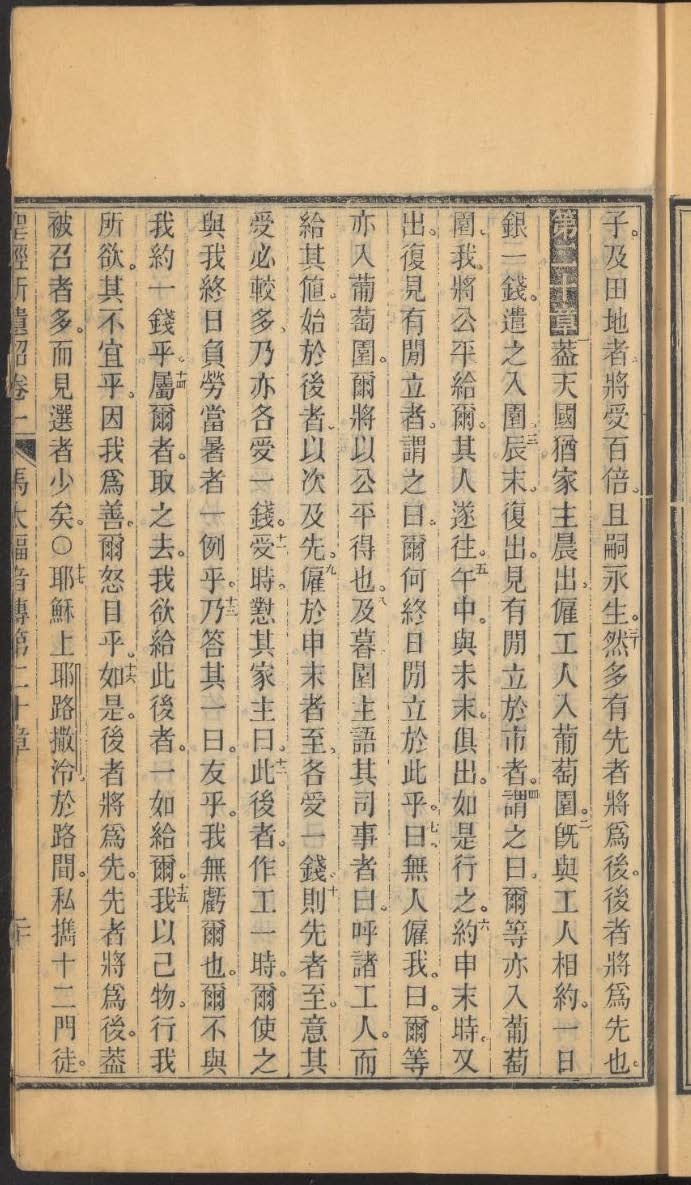 子。及田地者將受百倍。且嗣永生。三十然多有先者將爲後。後者將爲先也。
第二十章一葢天國猶家主晨出。僱工人入葡萄園。二旣與工人相約。一日
銀一錢。遣之入園。三辰末。復出。見有閒立於市者。四謂之曰。爾等亦入葡萄
園。我將公平給爾。其人遂往。五午中。與未末。俱出。如是行之。六約申末時。又
出。復見有閒立者。謂之曰。爾何終日閒立於此乎。七曰。無人僱我。曰。爾等
亦入葡萄園。爾將以公平得也。八及暮園主語其司事者曰。呼諸工人。而
給其値。始於後者。以次及先。九僱於申末者至。各受一錢。十則先者至。意其
受必較多。乃亦各受一錢。十一受時。懟其家主曰。十二此後者。作工一時。爾使之
與我終日負勞當暑者一例乎。十三乃答其一曰。友乎。我無虧爾也。爾不與
我約一錢乎。十四屬爾者。取之去。我欲給此後者。一如給爾。十五我以己物。行我
所欲。其不宜乎。因我爲善。爾怒目乎。十六如是。後者將爲先。先者將爲後。葢
被召者多。而見選者少矣。○十七耶穌上耶路撒冷。於路間。私攜十二門徒。
聖經新遺詔卷一 馬太福音傳第二十章